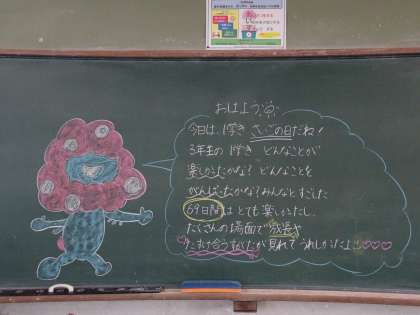 おはよう
今日は、1学き さいごの日だね!
3年生の1学き どんなことが
楽しかったかな? どんなことを
がんばったかな? みんなとすごした
69日間は とても楽しかったし、
たくさんの場面で成長や
たすけ合うすがたが見れてうれしかったよ